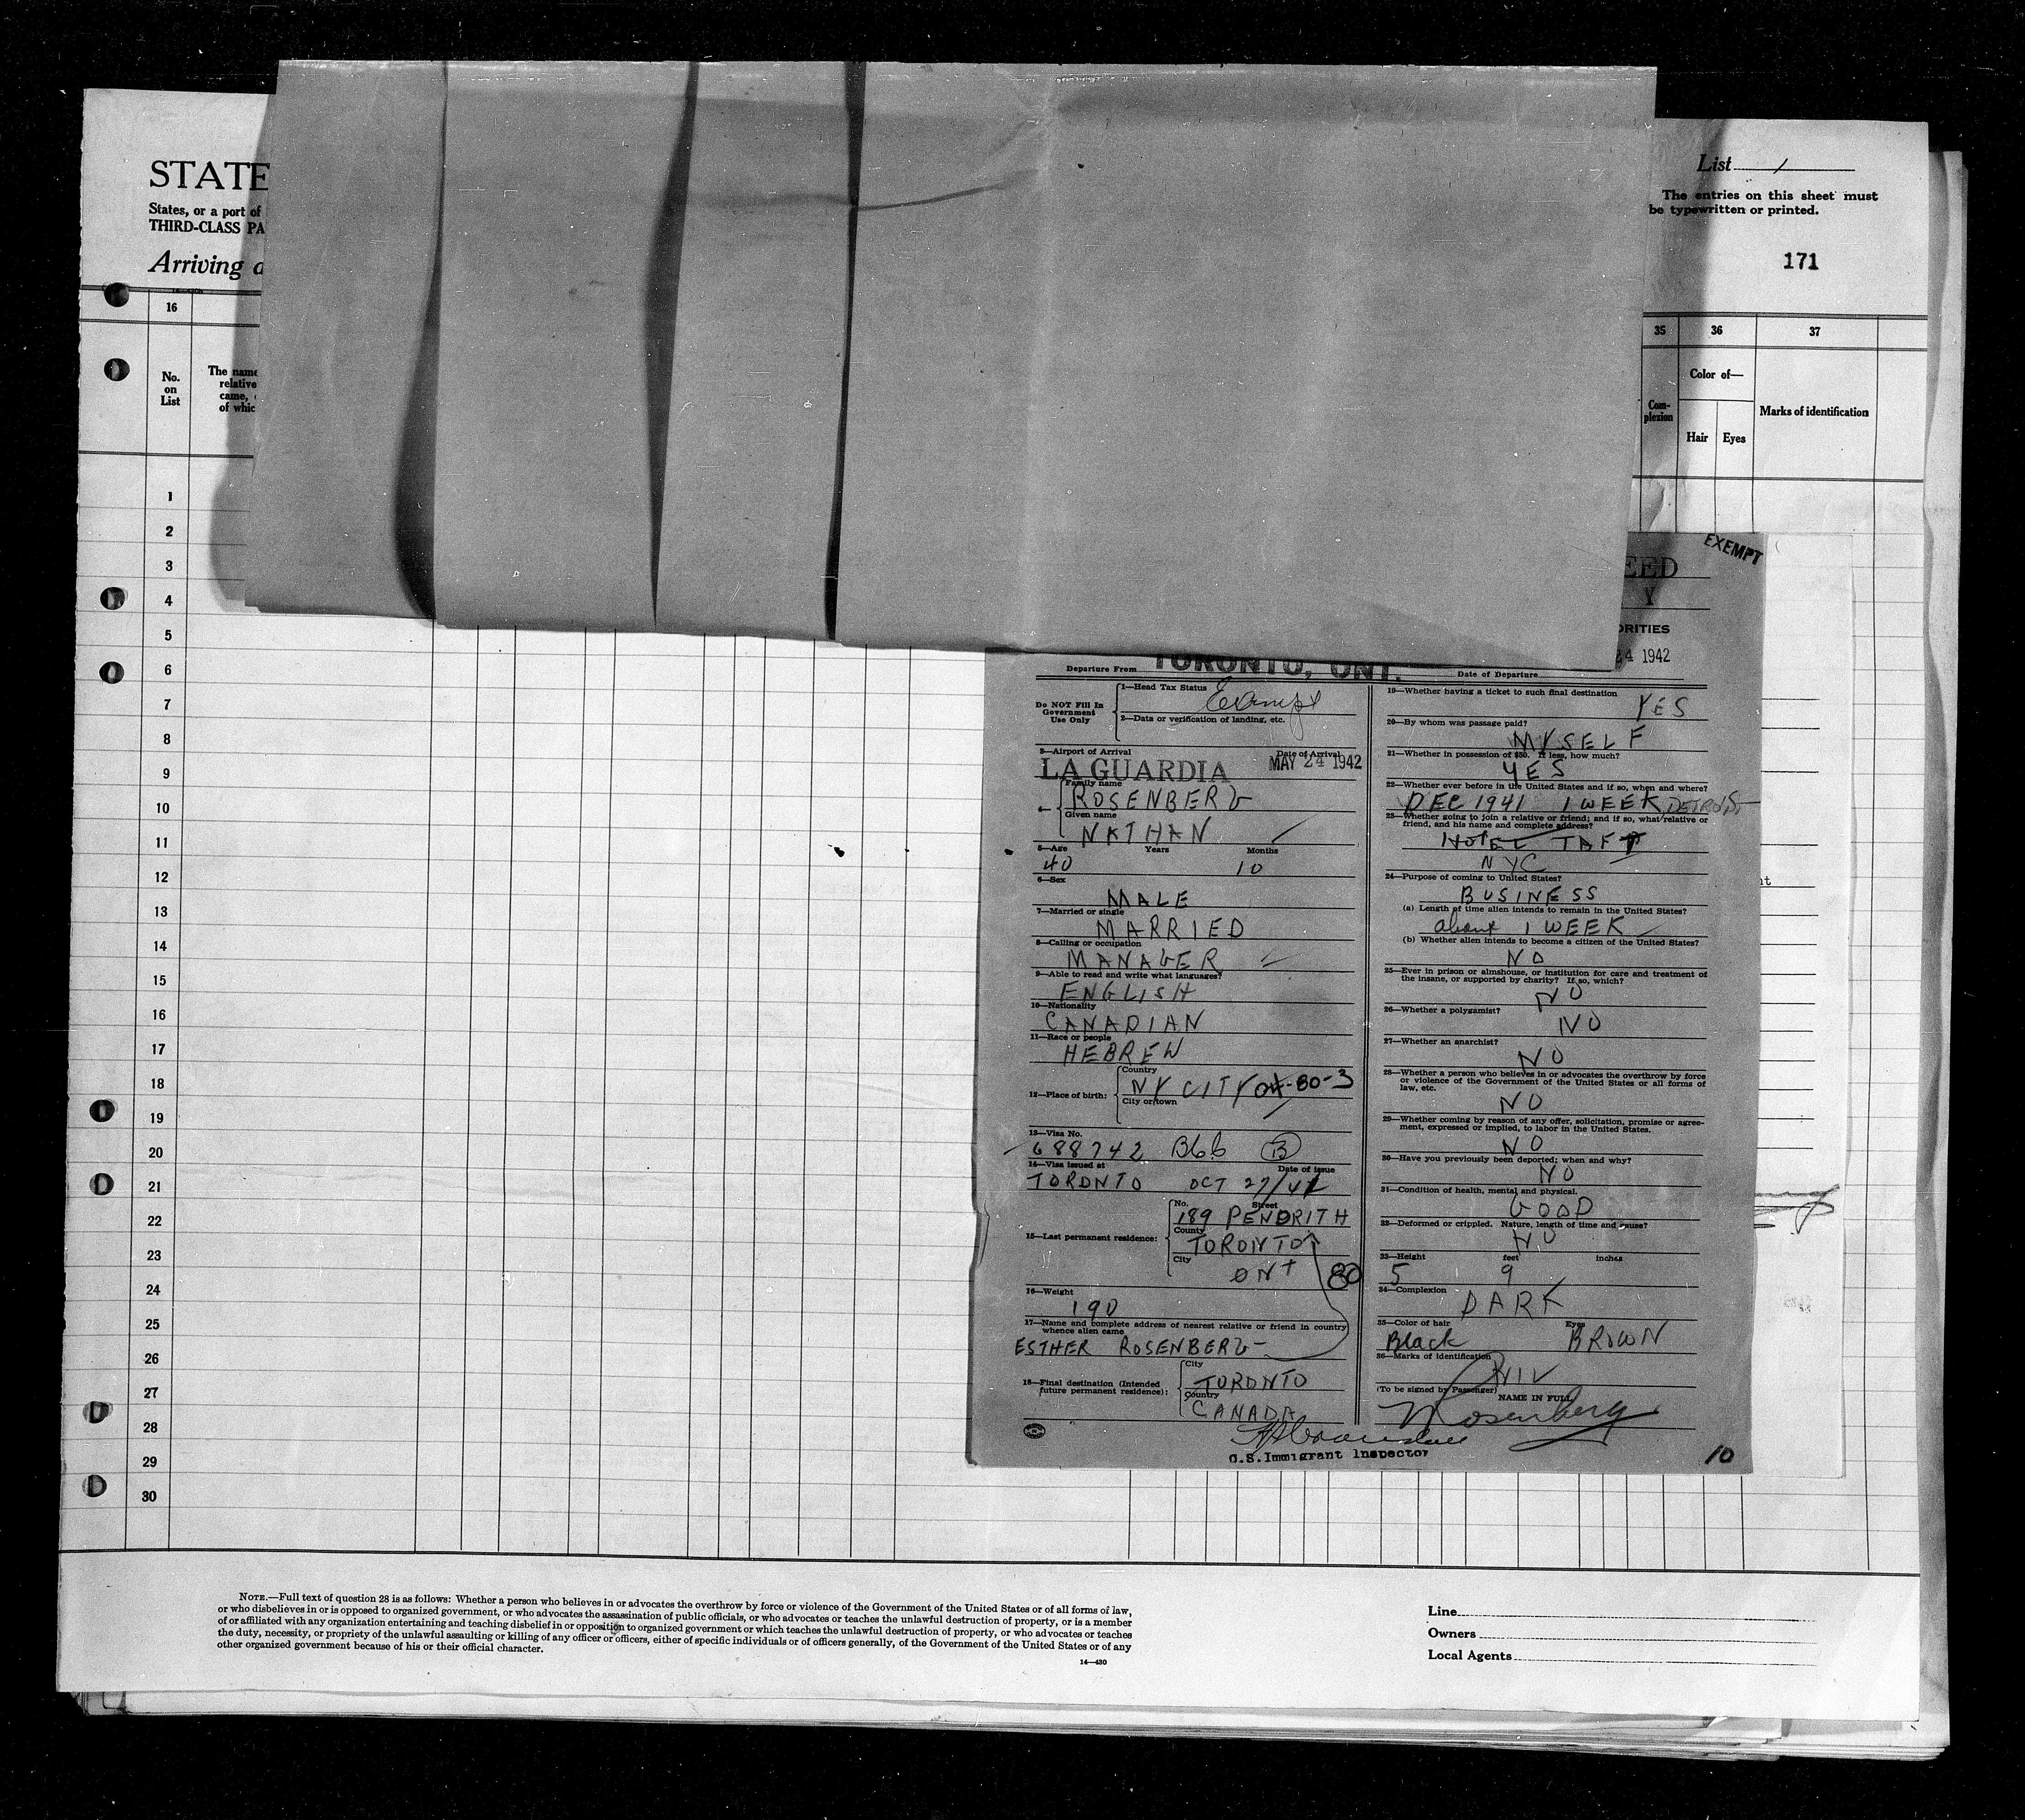 STATE
States, or a port of
THIRD-CLASS PA
Arriving a
List 1
The entries on this sheet must
be typewritten or printed.
171
16
35 36 37
No.
on
List
The name
relative
came,
of whic
Com-
plexion
Color of—
Hair Eyes
Marks of identification
1
2
3
4
5
6
7
8
9
10
11
12
13
14
15
16
17
18
19
20
21
22
23
24
25
26
27
28
29
30
EXEMPT
EED
Y
ORITIES
24 1942
Departure From TORONTO, ONT.
Date of Departure
Do NOT Fill In
Government
Use Only
1—Head Tax Status Exempt
2—Data or verification of landing, etc.
3—Airport of Arrival Date of Arrival
LA GUARDIA MAY 24 1942
4— Family name
ROSENBERG
Given name
NATHAN
5—Age Years Months
40 10
6—Sex
MALE
7—Married or single
MARRIED
8—Calling or occupation
MANAGER
9—Able to read and write what languages?
ENGLISH
10—Nationality
CANADIAN
11—Race or people
HEBREW
12—Place of birth: Country
NY CITY 04-80-3
City or town
13—Visa No.
688742 B66 B
14—Visa issued at Date of issue
TORONTO OCT 27/41
15—Last permanent residence:
No. Street
189 PENDRITH
County
TORONTO
City
ONT 80
16—Weight
190
17—Name and complete address of nearest relative or friend in country
whence alien came
ESTHER ROSENBERG
18—Final destination (Intended
future permanent residence):
City
TORONTO
Country
CANADA
U.S. Immigrant Inspector
19—Whether having a ticket to such final destination
YES
20—By whom was passage paid?
MYSELF
21—Whether in possession of $50. If less, how much?
YES
22—Whether ever before in the United States and if so, when and where?
DEC 1941 1 WEEK, DETROIT
23—Whether going to join a relative or friend; and if so, what relative or
friend, and his name and complete address?
HOTEL TAFT
NYC
24—Purpose of coming to United States?
BUSINESS
(a) Length of time alien intends to remain in the United States?
about 1 WEEK
(b) Whether alien intends to become a citizen of the United States?
NO
25—Ever in prison or almshouse, or institution for care and treatment of
the insane, or supported by charity? If so, which?
NO
26—Whether a polygamist?
NO
27—Whether an anarchist?
NO
28—Whether a person who believes in or advocates the overthrow by force
or violence of the Government of the United States or all forms of
law, etc.
NO
29—Whether coming by reason of any offer, solicitation, promise or agree-
ment, expressed or implied, to labor in the United States.
NO
30—Have you previously been deported; when and why?
NO
31—Condition of health, mental and physical.
GOOD
32—Deformed or crippled. Nature, length of time and cause?
NO
33—Height feet inches
5 9
34—Complexion
DARK
35—Color of hair Eyes
Black BROWN
36—Marks of identification
NIL
(To be signed by Passenger) NAME IN FULL
N Rosenberg
10
nt
NOTE.—Full text of question 28 is as follows: Whether a person who believes in or advocates the overthrow by force or violence of the Government of the United States or of all forms of law,
or who disbelieves in or is opposed to organized government, or who advocates the assassination of public officials, or who advocates or teaches the unlawful destruction of property, or is a member
of or affiliated with any organization entertaining and teaching disbelief in or opposition to organized government or which teaches the unlawful destruction of property, or who advocates or teaches
the duty, necessity, or propriety of the unlawful assaulting or killing of any officer or officers, either of specific individuals or of officers generally, of the Government of the United States or of any
other organized government because of his or their official character.
14—430
Line
Owners
Local Agents